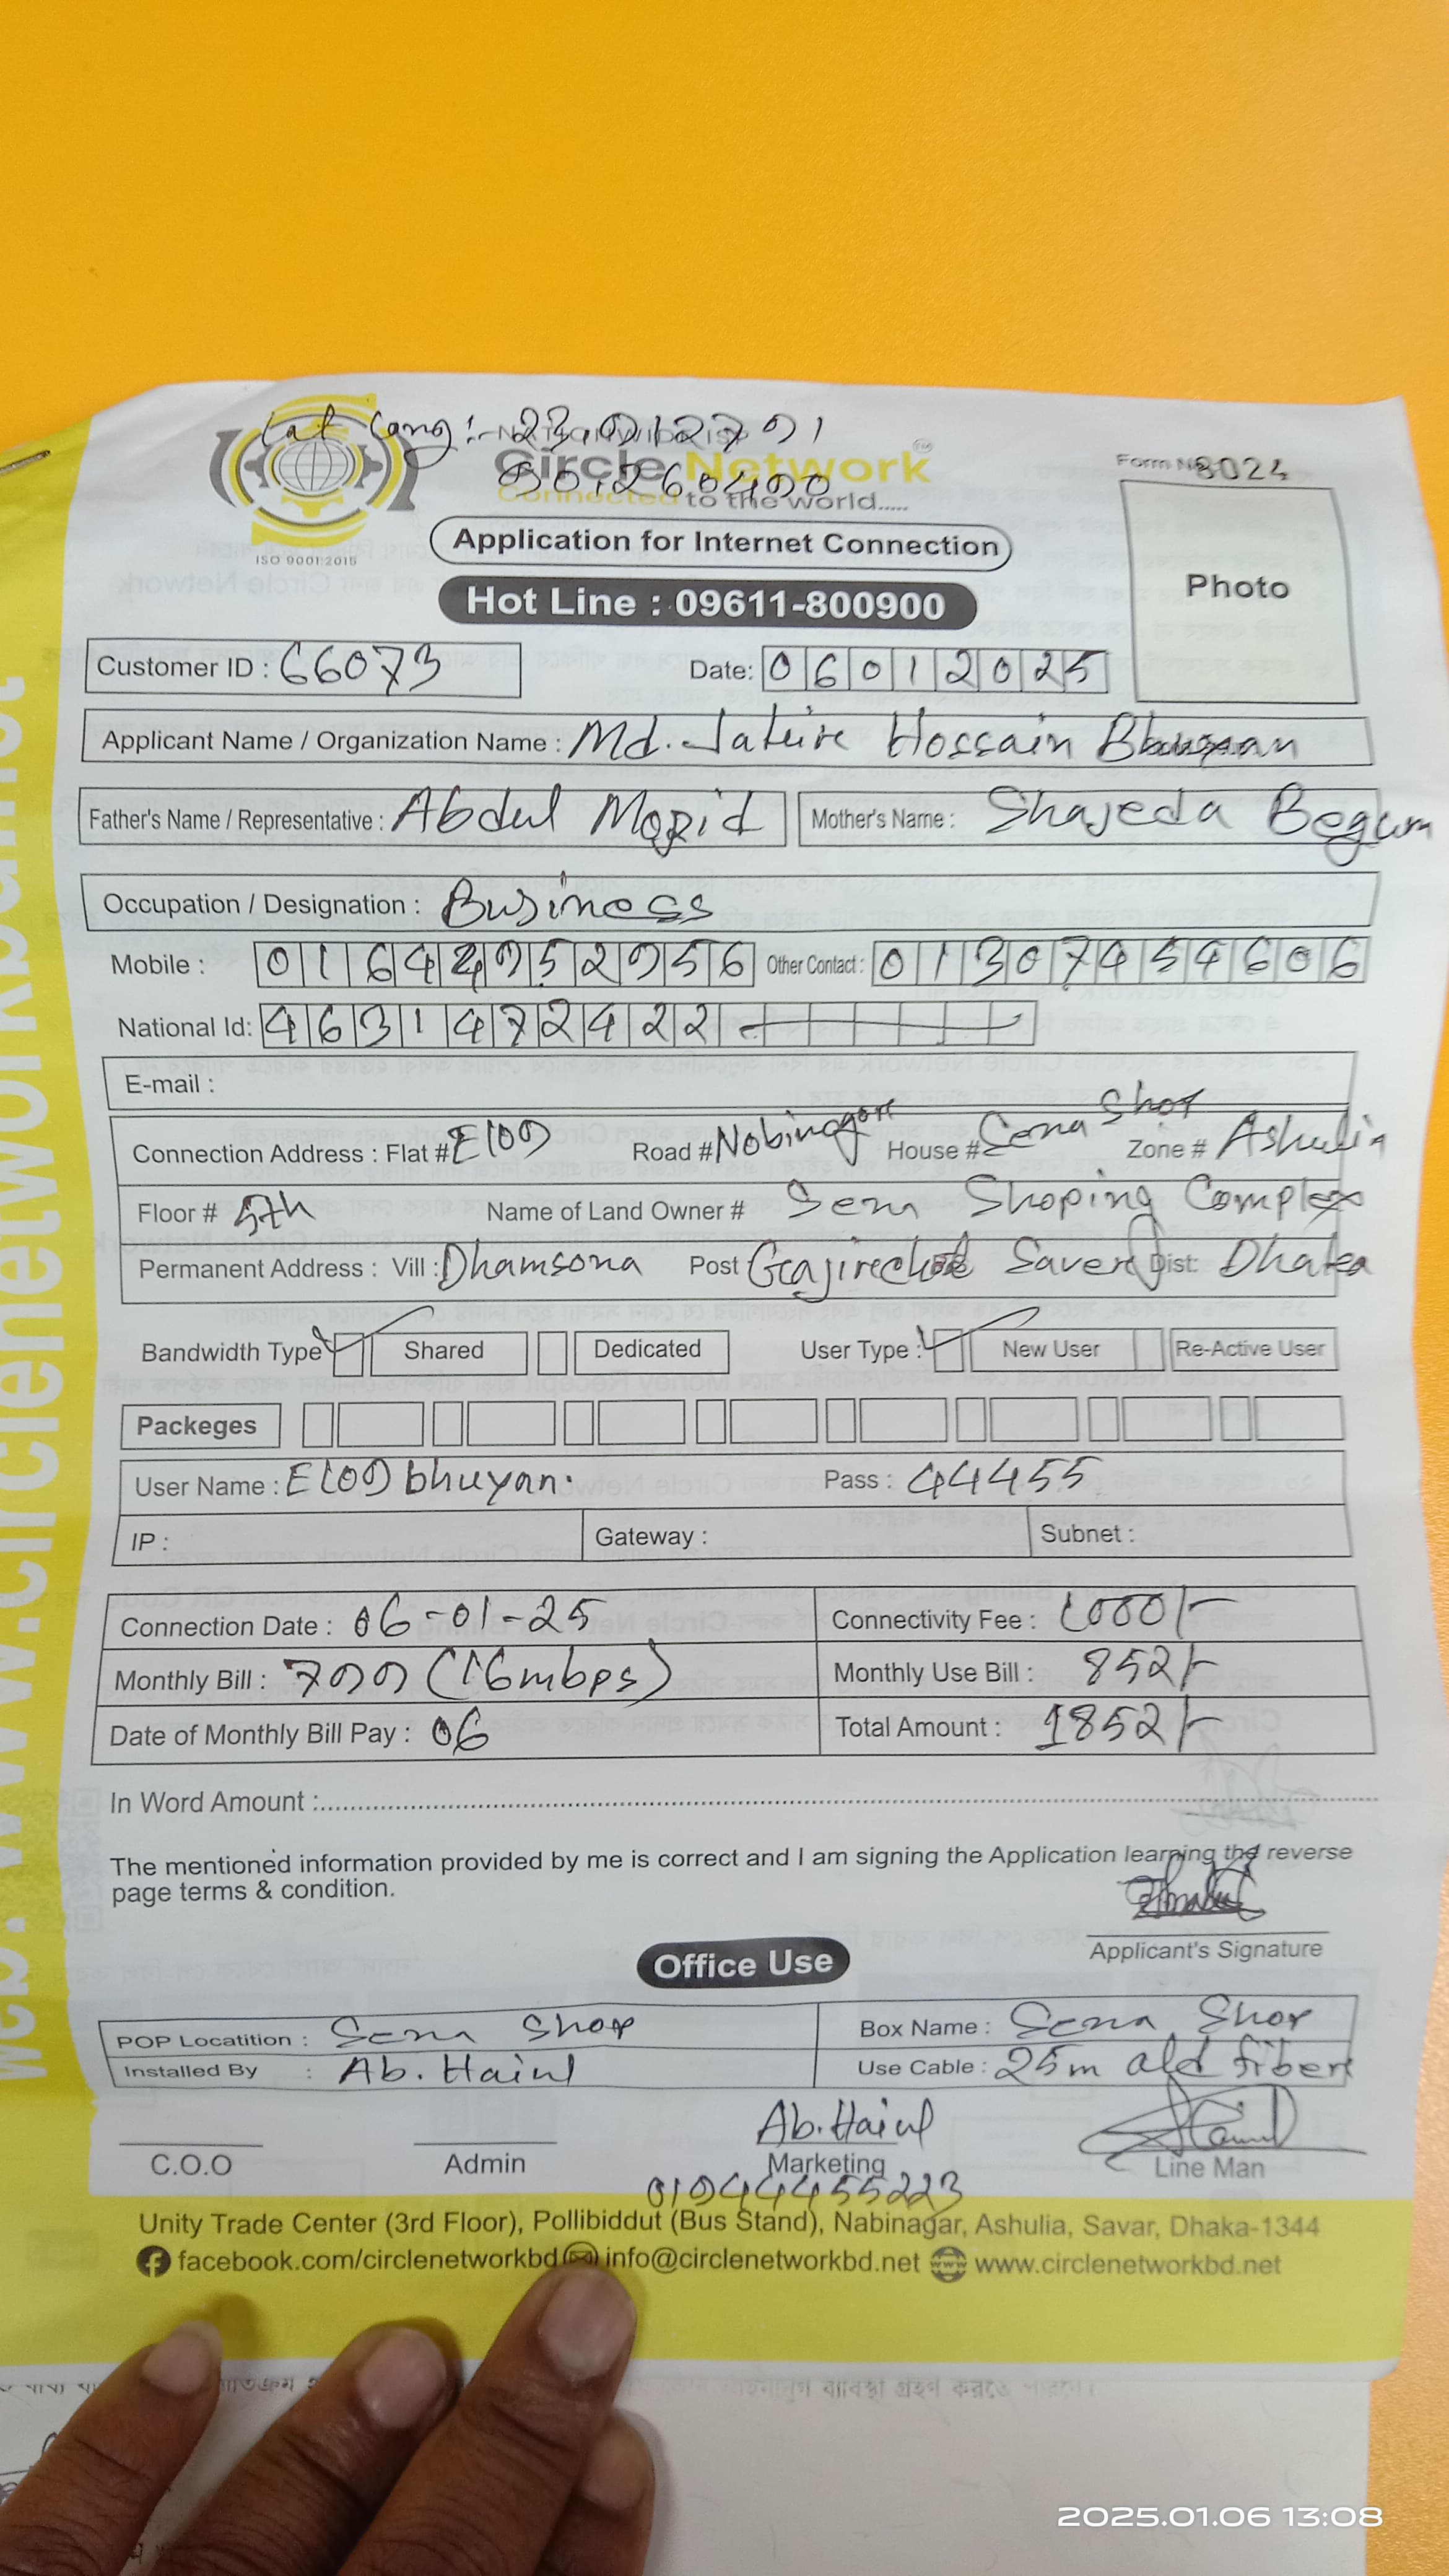 Lat Long:- 23.9127791
90.260490
Nationwide ISP
Circle Network™
Connected to the world.....
ISO 9001:2015
Form No 8024
Application for Internet Connection
Photo
Hot Line : 09611-800900
Customer ID : 66073
Date: 06012025
Applicant Name / Organization Name : Md. Hossain Bhuyan
Father's Name / Representative : Abdul Mogid
Mother's Name : Shajeda Begum
Occupation / Designation : Business
Mobile :
Other Contact : 01307454606
National Id: 4631472422
E-mail :
Connection Address : Flat # E109 Road # Nobinagor House # Sena Shop Zone # Ashulia
Floor # 5th Name of Land Owner # Sena Shoping Complex
Permanent Address : Vill : Dhamsona Post Savar Dist: Dhaka
Bandwidth Type Shared Dedicated User Type : New User Re-Active User
Packeges
User Name : E109bhuyan. Pass : 44455
IP : Gateway : Subnet :
Connection Date : 06-01-25 Connectivity Fee : 1000/-
Monthly Bill : 799 (16mbps) Monthly Use Bill : 852/-
Date of Monthly Bill Pay : 06 Total Amount : 1852/-
In Word Amount :
The mentioned information provided by me is correct and I am signing the Application learning the reverse
page terms & condition.
Applicant's Signature
Office Use
POP Locatition : Sena Shop Box Name : Sena Shop
Installed By : Ab. Hainl Use Cable : 25m old fiber
Ab. Hainl
C.O.O Admin Marketing Line Man
01944455223
Unity Trade Center (3rd Floor), Pollibiddut (Bus Stand), Nabinagar, Ashulia, Savar, Dhaka-1344
facebook.com/circlenetworkbd info@circlenetworkbd.net www.circlenetworkbd.net
web: www.circlenetworkbd.net
2025.01.06 13:08